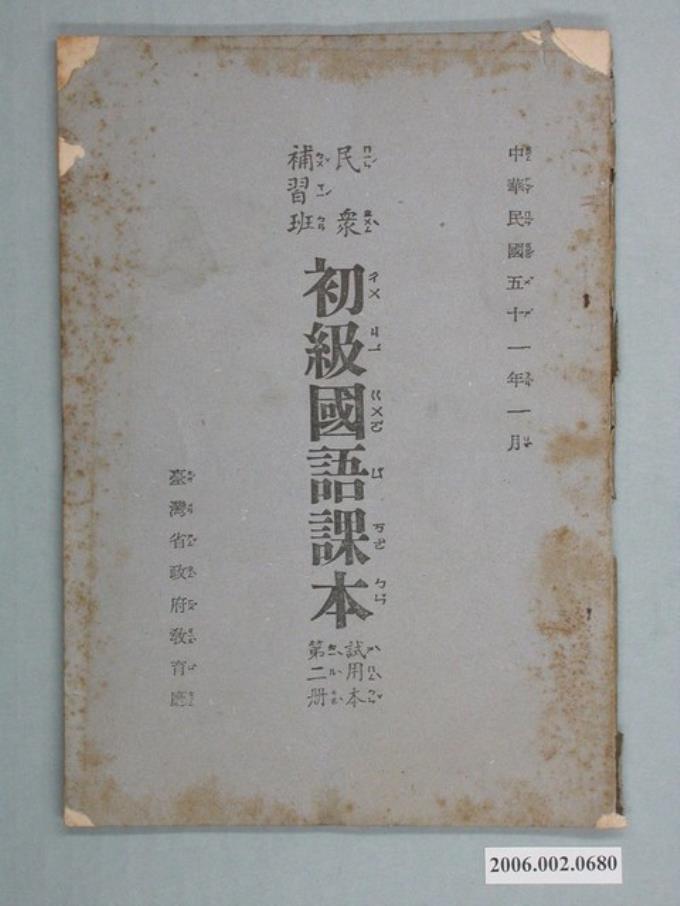 中華民國五十一年一月
民眾
補習班
初級國語課本
ㄔㄨ ㄐㄧˊ ㄍㄨㄛˊ ㄩˇ ㄎㄜˋ ㄅㄣˇ
試用本
第二册
臺灣省政府教育廳
2006.002.0680